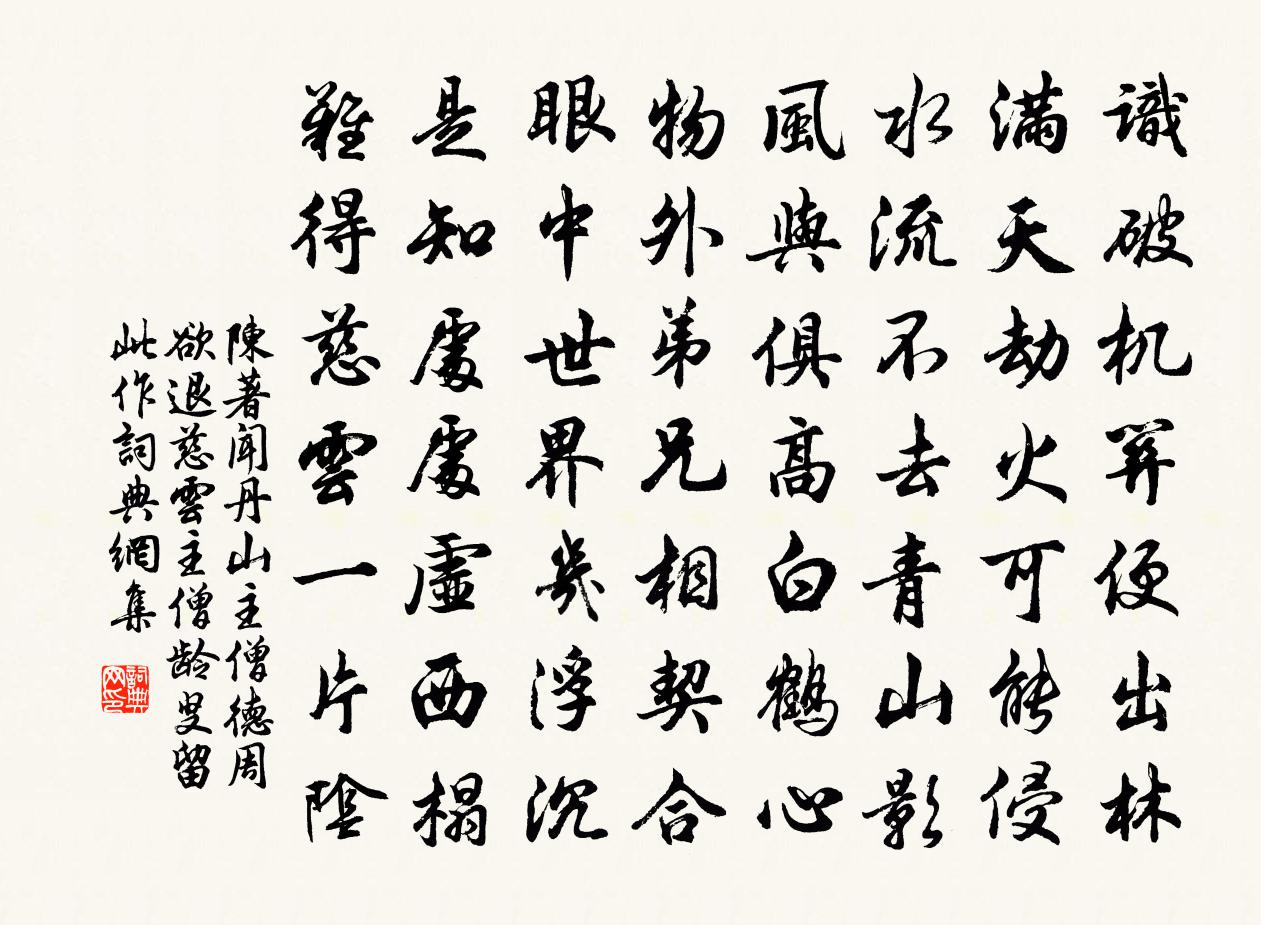 識破机筭便出林
満天劫火可能侵
水流不去青山影
風與俱高白鶴心
物外弟兄相契合
眼中世界幾浮沉
是知處處虛西榻
難得慈雲一片陰
陳著聞丹山主僧德周
欲退慈雲主僧龄叟留
此作詞典網集
詞典网印